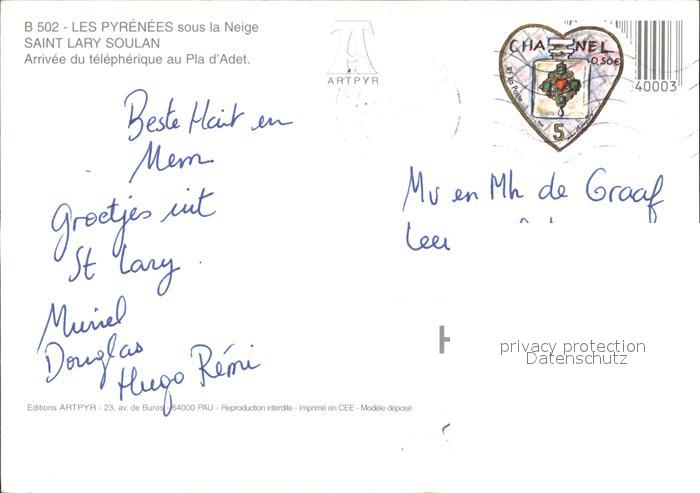 B 502 - LES PYRÉNÉES sous la Neige
SAINT LARY SOULAN
Arrivée du téléphérique au Pla d'Adet.
ARTPYR
CHANEL
0,50€
RF La Poste
5
40003
Beste Hait en
Mem
Groetjes uit
St Lary.
Muriel
Douglas
Hugo Rémi
Mv en Mh de Graaf
privacy protection
Datenschutz
Editions ARTPYR - 23, av. de Buros - 64000 PAU - Reproduction interdite - Imprimé en CEE - Modèle déposé